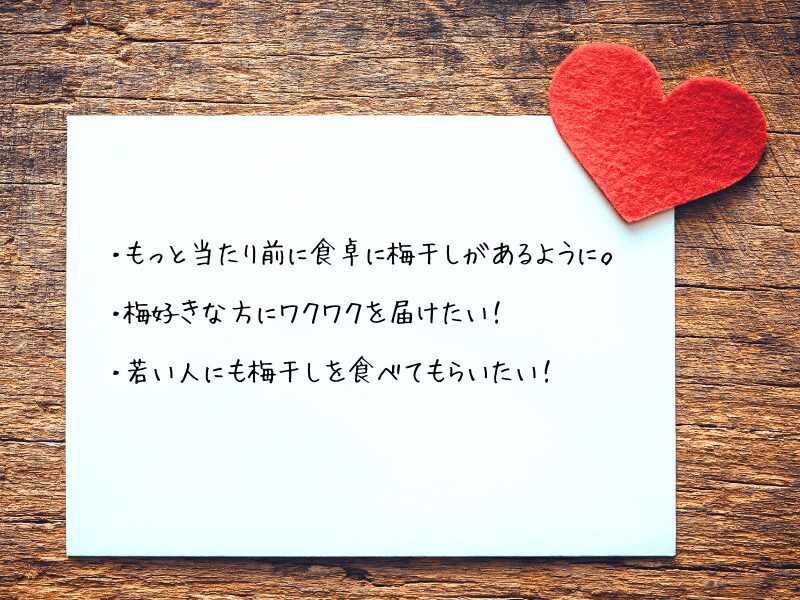 ・もっと当たり前に食卓に梅干しがあるように。
・梅好きな方にワクワクを届けたい！
・若い人にも梅干しを食べてもらいたい！